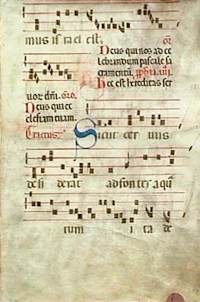 mus israel est. or̄
Deus qui nos ad ce
lebrandum pascale sa
cramentū,
Hec est hereditas ser
uorum dñi. Gło. or̄o.
Deus qui ec
clesiam tuam.
Tractus.
Sicut cer uus
desi derat ad fontes aqua
rum ita de